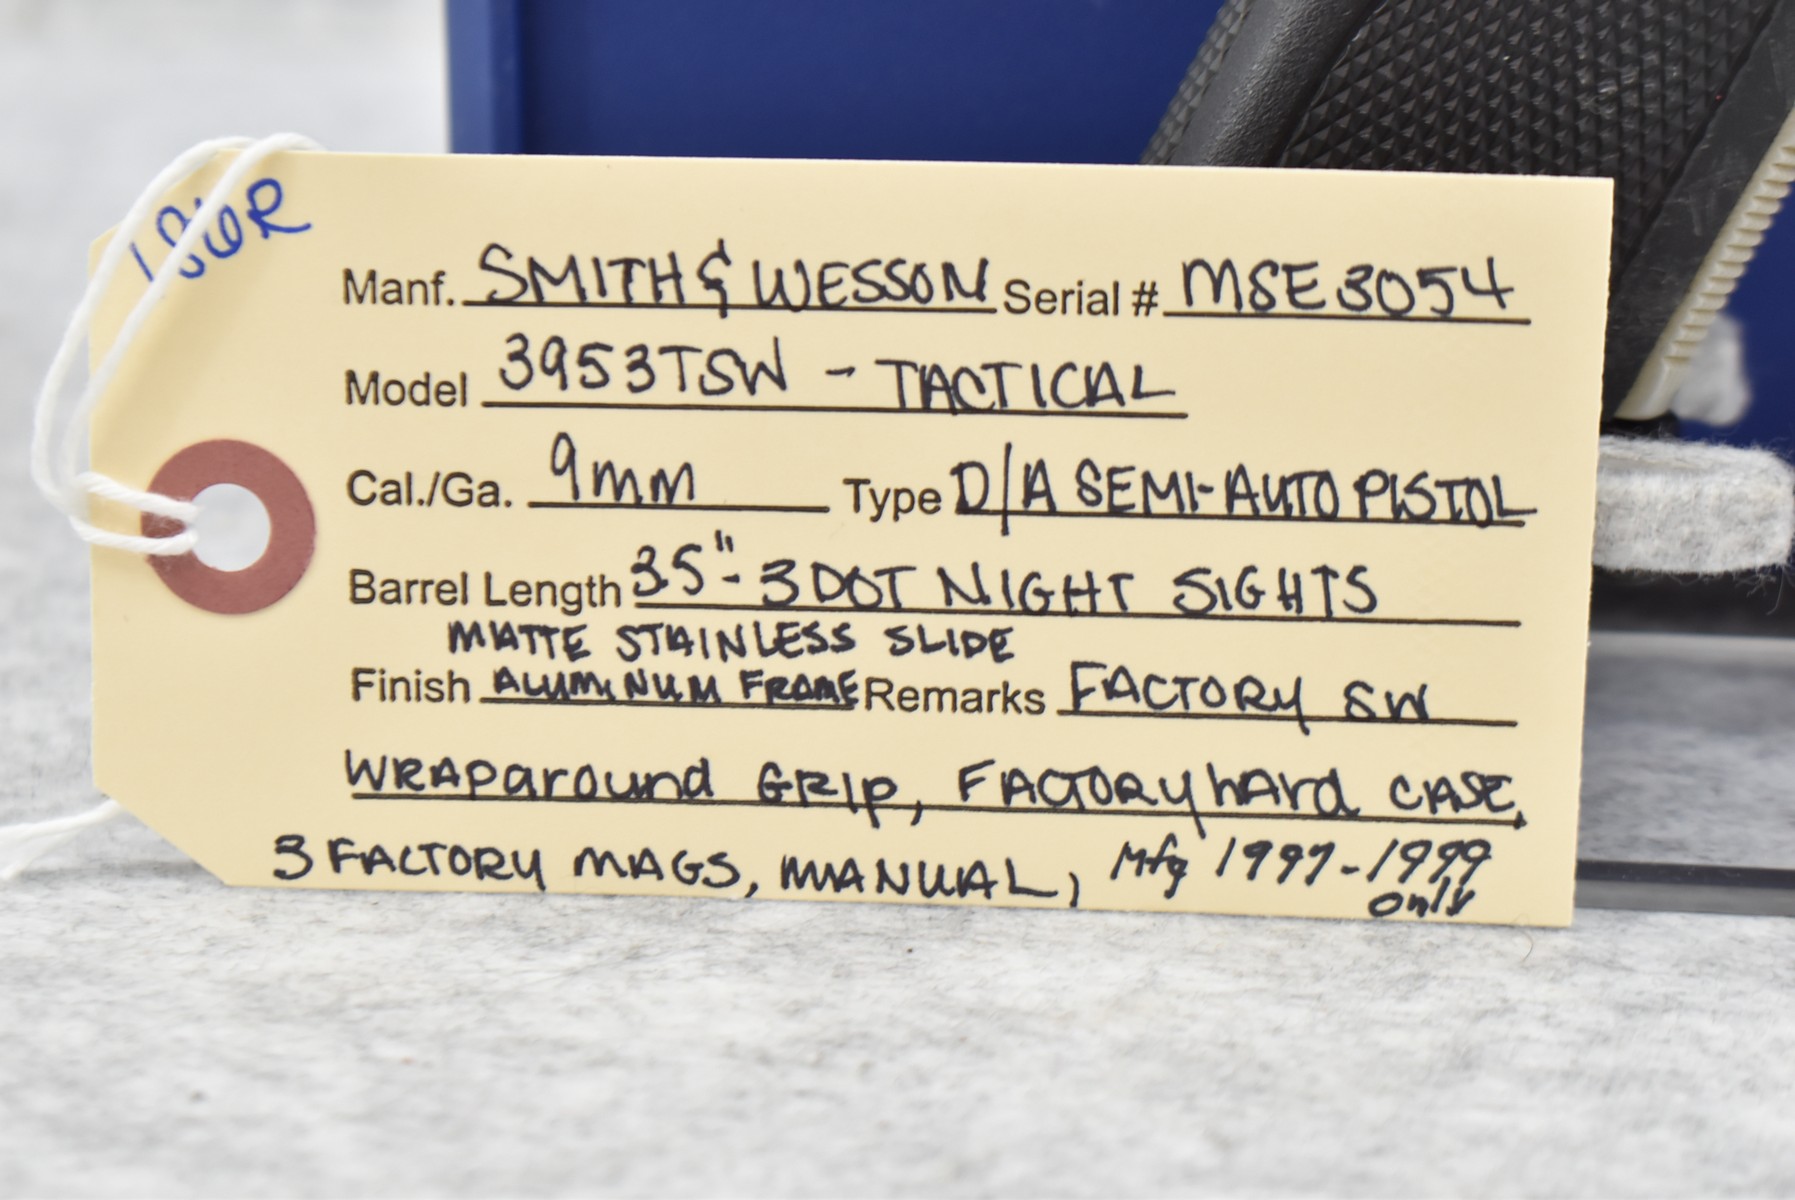 186R
Manf. SMITH & WESSON Serial # MSE3054
Model 3953TSW - TACTICAL
Cal./Ga. 9mm Type D/A SEMI-AUTO PISTOL
Barrel Length 3.5" - 3 DOT NIGHT SIGHTS
MATTE STAINLESS SLIDE
Finish ALUMINUM FRAME Remarks FACTORY SW
WRAParound GRIP, FACTORY hARd CASE,
3 FACTORY MAGS, MANUAL, Mfg 1997-1999
only